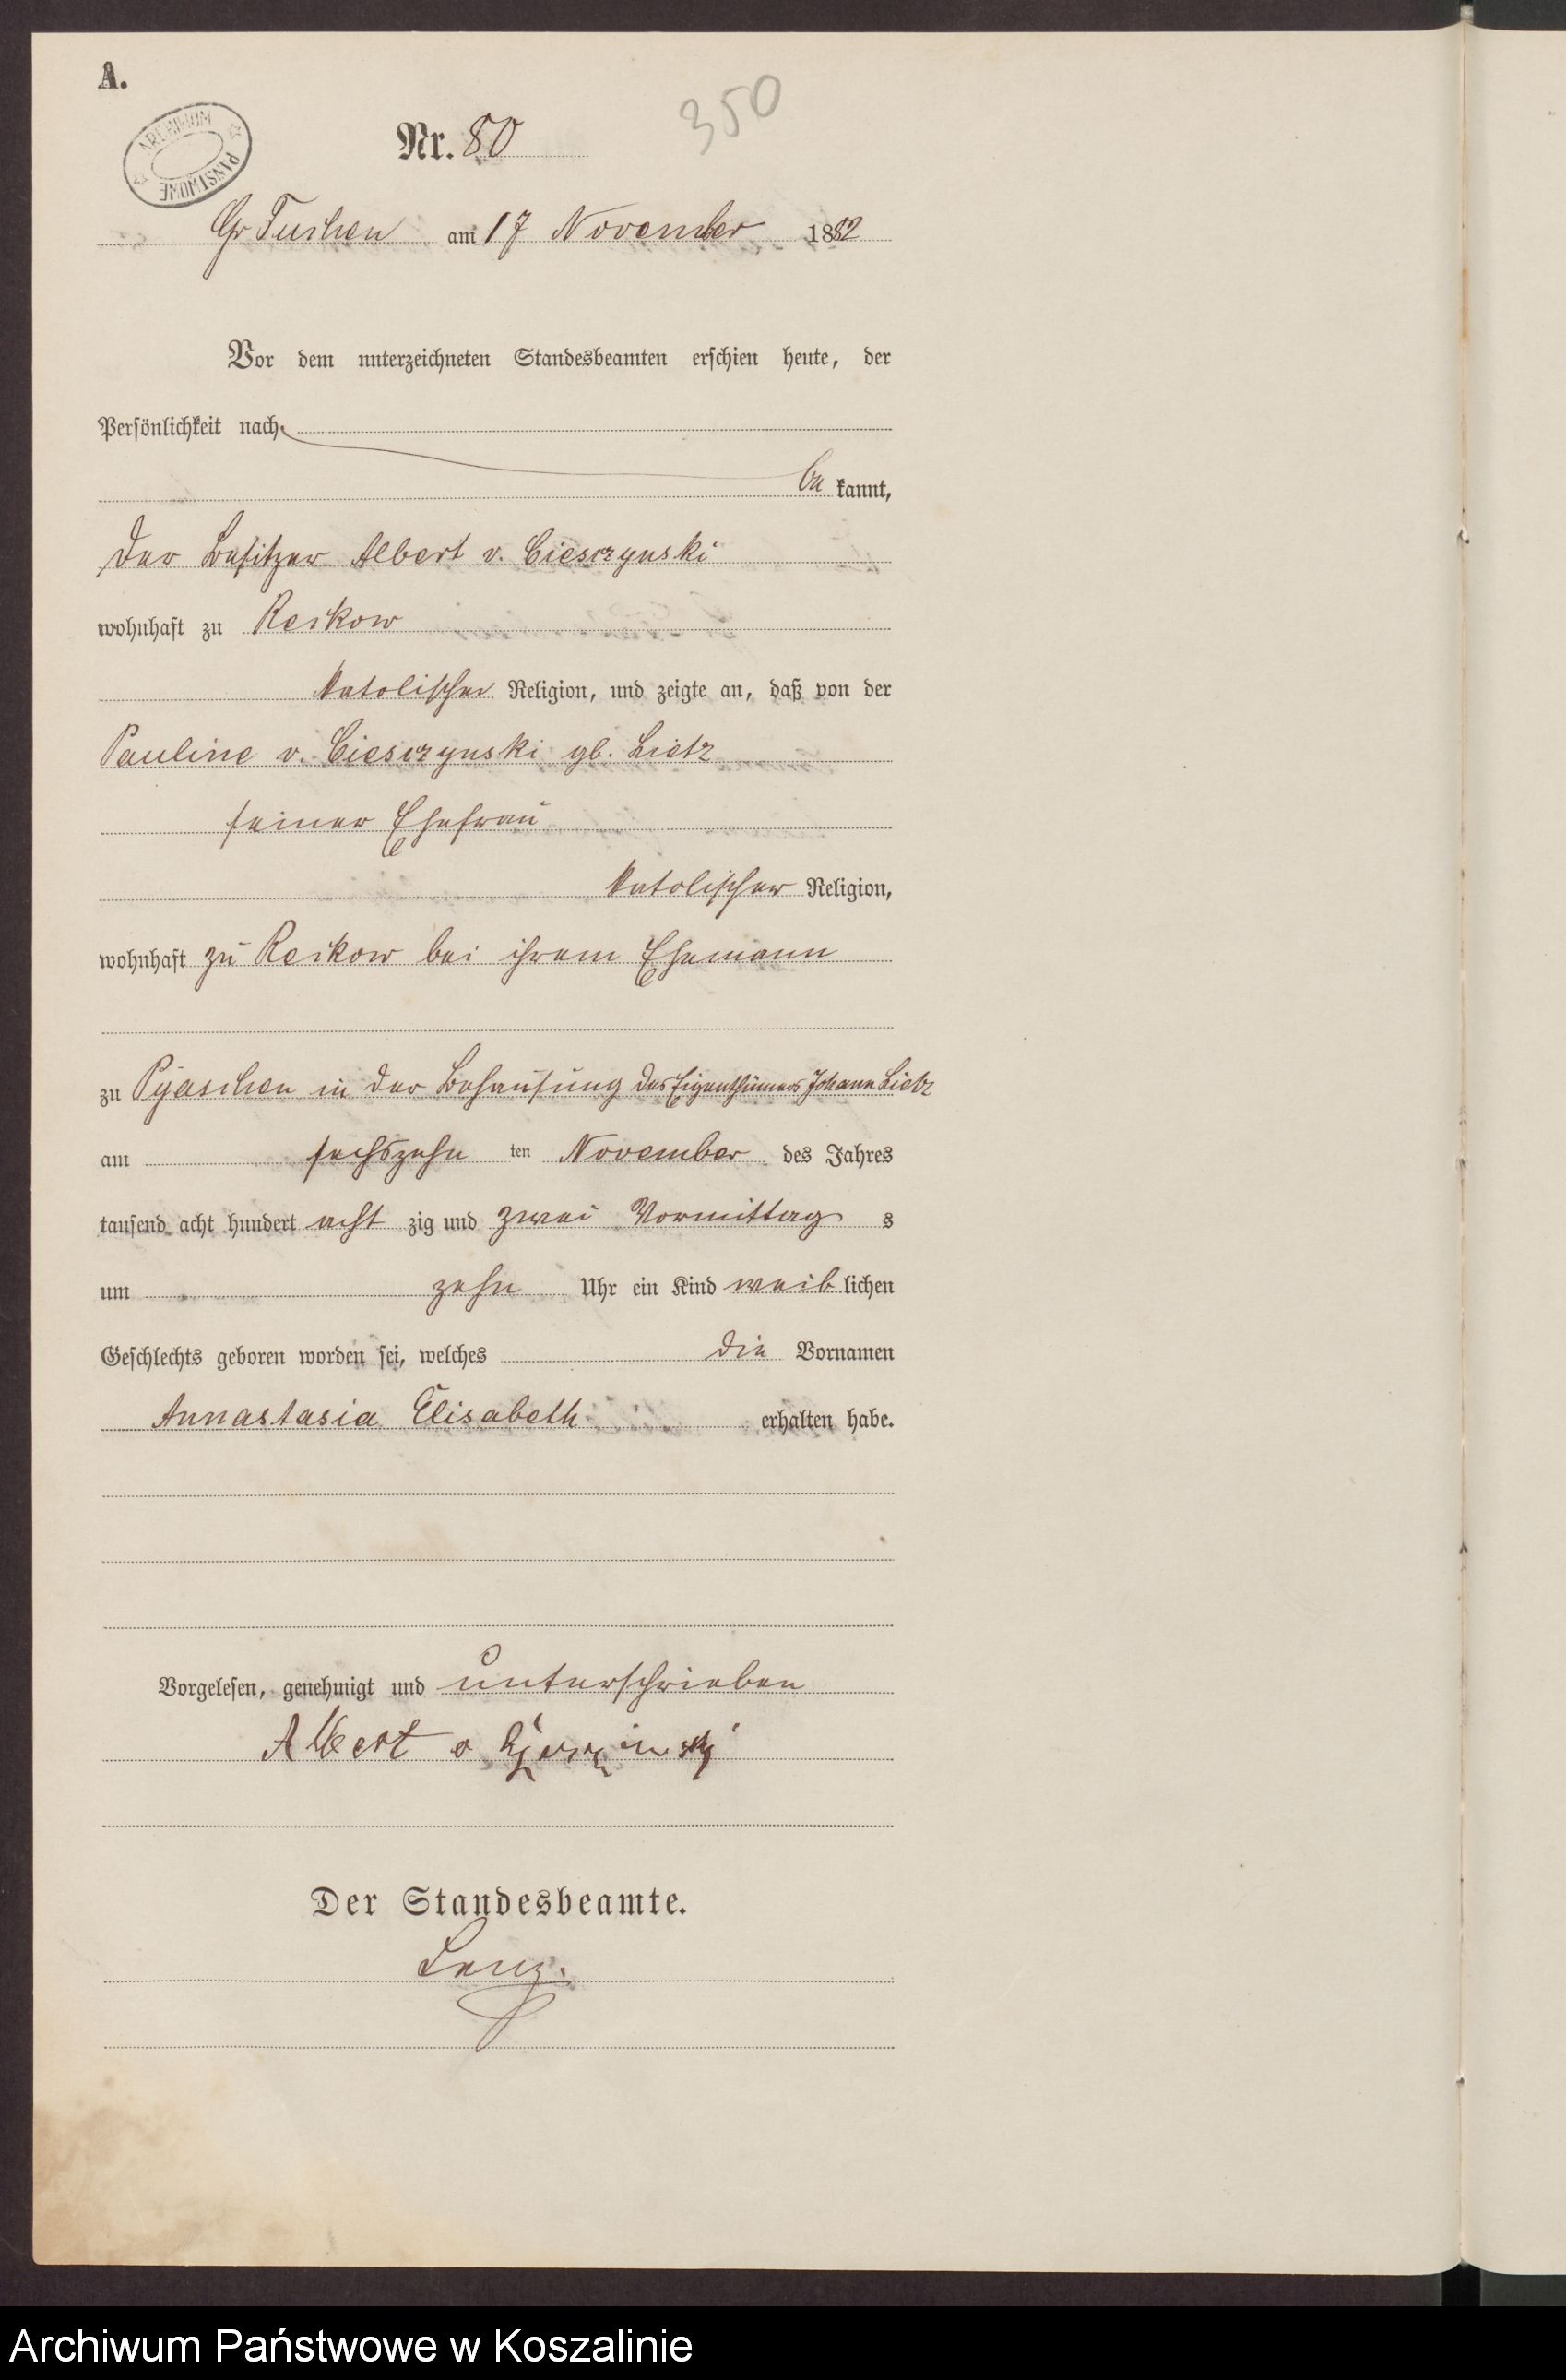 A.
ARCHIWUM PAŃSTWOWE
Nr. 80
350
Gr Tuchen am 17 November 1882
Vor dem unterzeichneten Standesbeamten erschien heute, der
Persönlichkeit nach
be kannt,
der Besitzer Albert v. Ciesczynski
wohnhaft zu Reckow
katolischer Religion, und zeigte an, daß von der
Pauline v. Ciesczynski gb. Lietz
seiner Ehefrau
katolischer Religion,
wohnhaft zu Reckow bei ihrem Ehemann
zu Pyaschen in der Behausung des Eigenthümers Johann Lietz
am sechszehn ten November des Jahres
tausend acht hundert acht zig und zwei Vormittag s
um zehn Uhr ein Kind weib lichen
Geschlechts geboren worden sei, welches die Vornamen
Annastasia Elisabeth erhalten habe.
Vorgelesen, genehmigt und unterschrieben
Albert v
Der Standesbeamte.
Lenz.
Archiwum Państwowe w Koszalinie